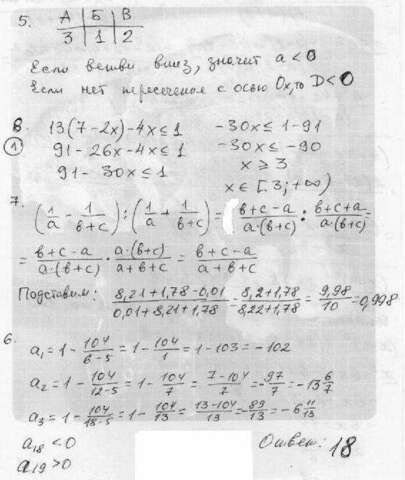 5. А | Б | В
3 | 1 | 2
Если ветви вниз, значит a<0
Если нет пересечения с осью Ox, то D<0
8. 13(7-2x)-4x≤1
① 91-26x-4x≤1
91-30x≤1
-30x≤1-91
-30x≤-90
x≥3
x∈[3;+∞)
7. (1/a - 1/(b+c)) : (1/a + 1/(b+c)) = (b+c-a)/(a·(b+c)) : (b+c+a)/(a(b+c)) =
= (b+c-a)/(a·(b+c)) · (a·(b+c))/(a+b+c) = (b+c-a)/(a+b+c)
Подставим: (8,21+1,78-0,01)/(0,01+8,21+1,78) = (8,2+1,78)/(8,22+1,78) = 9,98/10 = 0,998
6.
a₁ = 1 - 104/(6-5) = 1 - 104/1 = 1-103 = -102
a₂ = 1 - 104/(12-5) = 1 - 104/7 = (7-104)/7 = -97/7 = -13 6/7
a₃ = 1 - 104/(18-5) = 1 - 104/13 = (13-104)/13 = 89/13 = -6 11/13
a₁₈ < 0
a₁₉ > 0
Ответ: 18